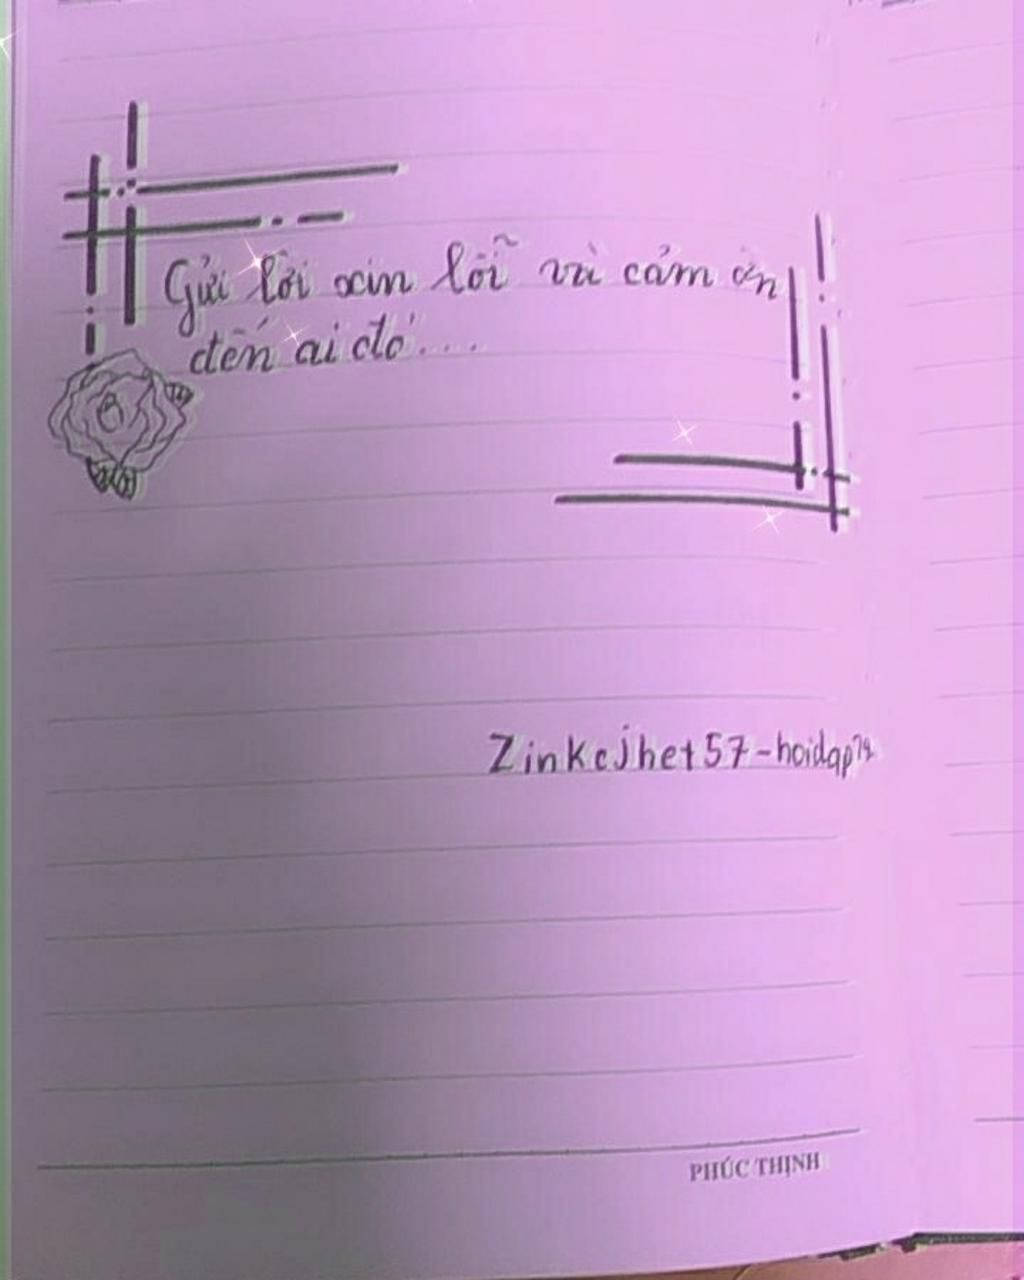 Gửi lời xin lỗi và cảm ơn
đến ai đó...
Zinkcjhet57-hoidap
PHÚC THỊNH